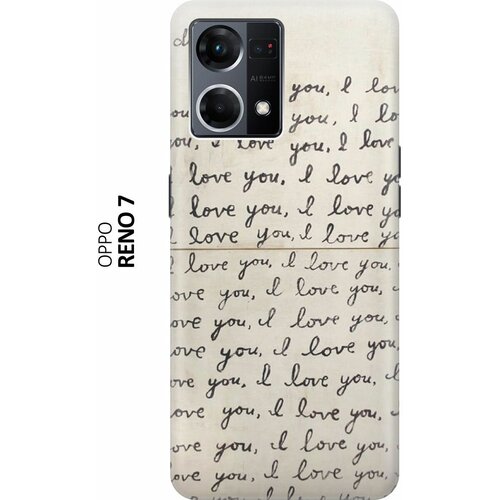 OPPO
RENO 7
AI
you, I lov
you, I lo
you, I love you, I love
love you, I love yo
I love you, I love yo
I love you, I love yo
I love you, I love you,
love you, I love you,
ove you, I love you,
ove you, I love you,
ove you, I love you, I
love you, I love you,
ove you, I love you,
ove you, I love you,
you, I love you,